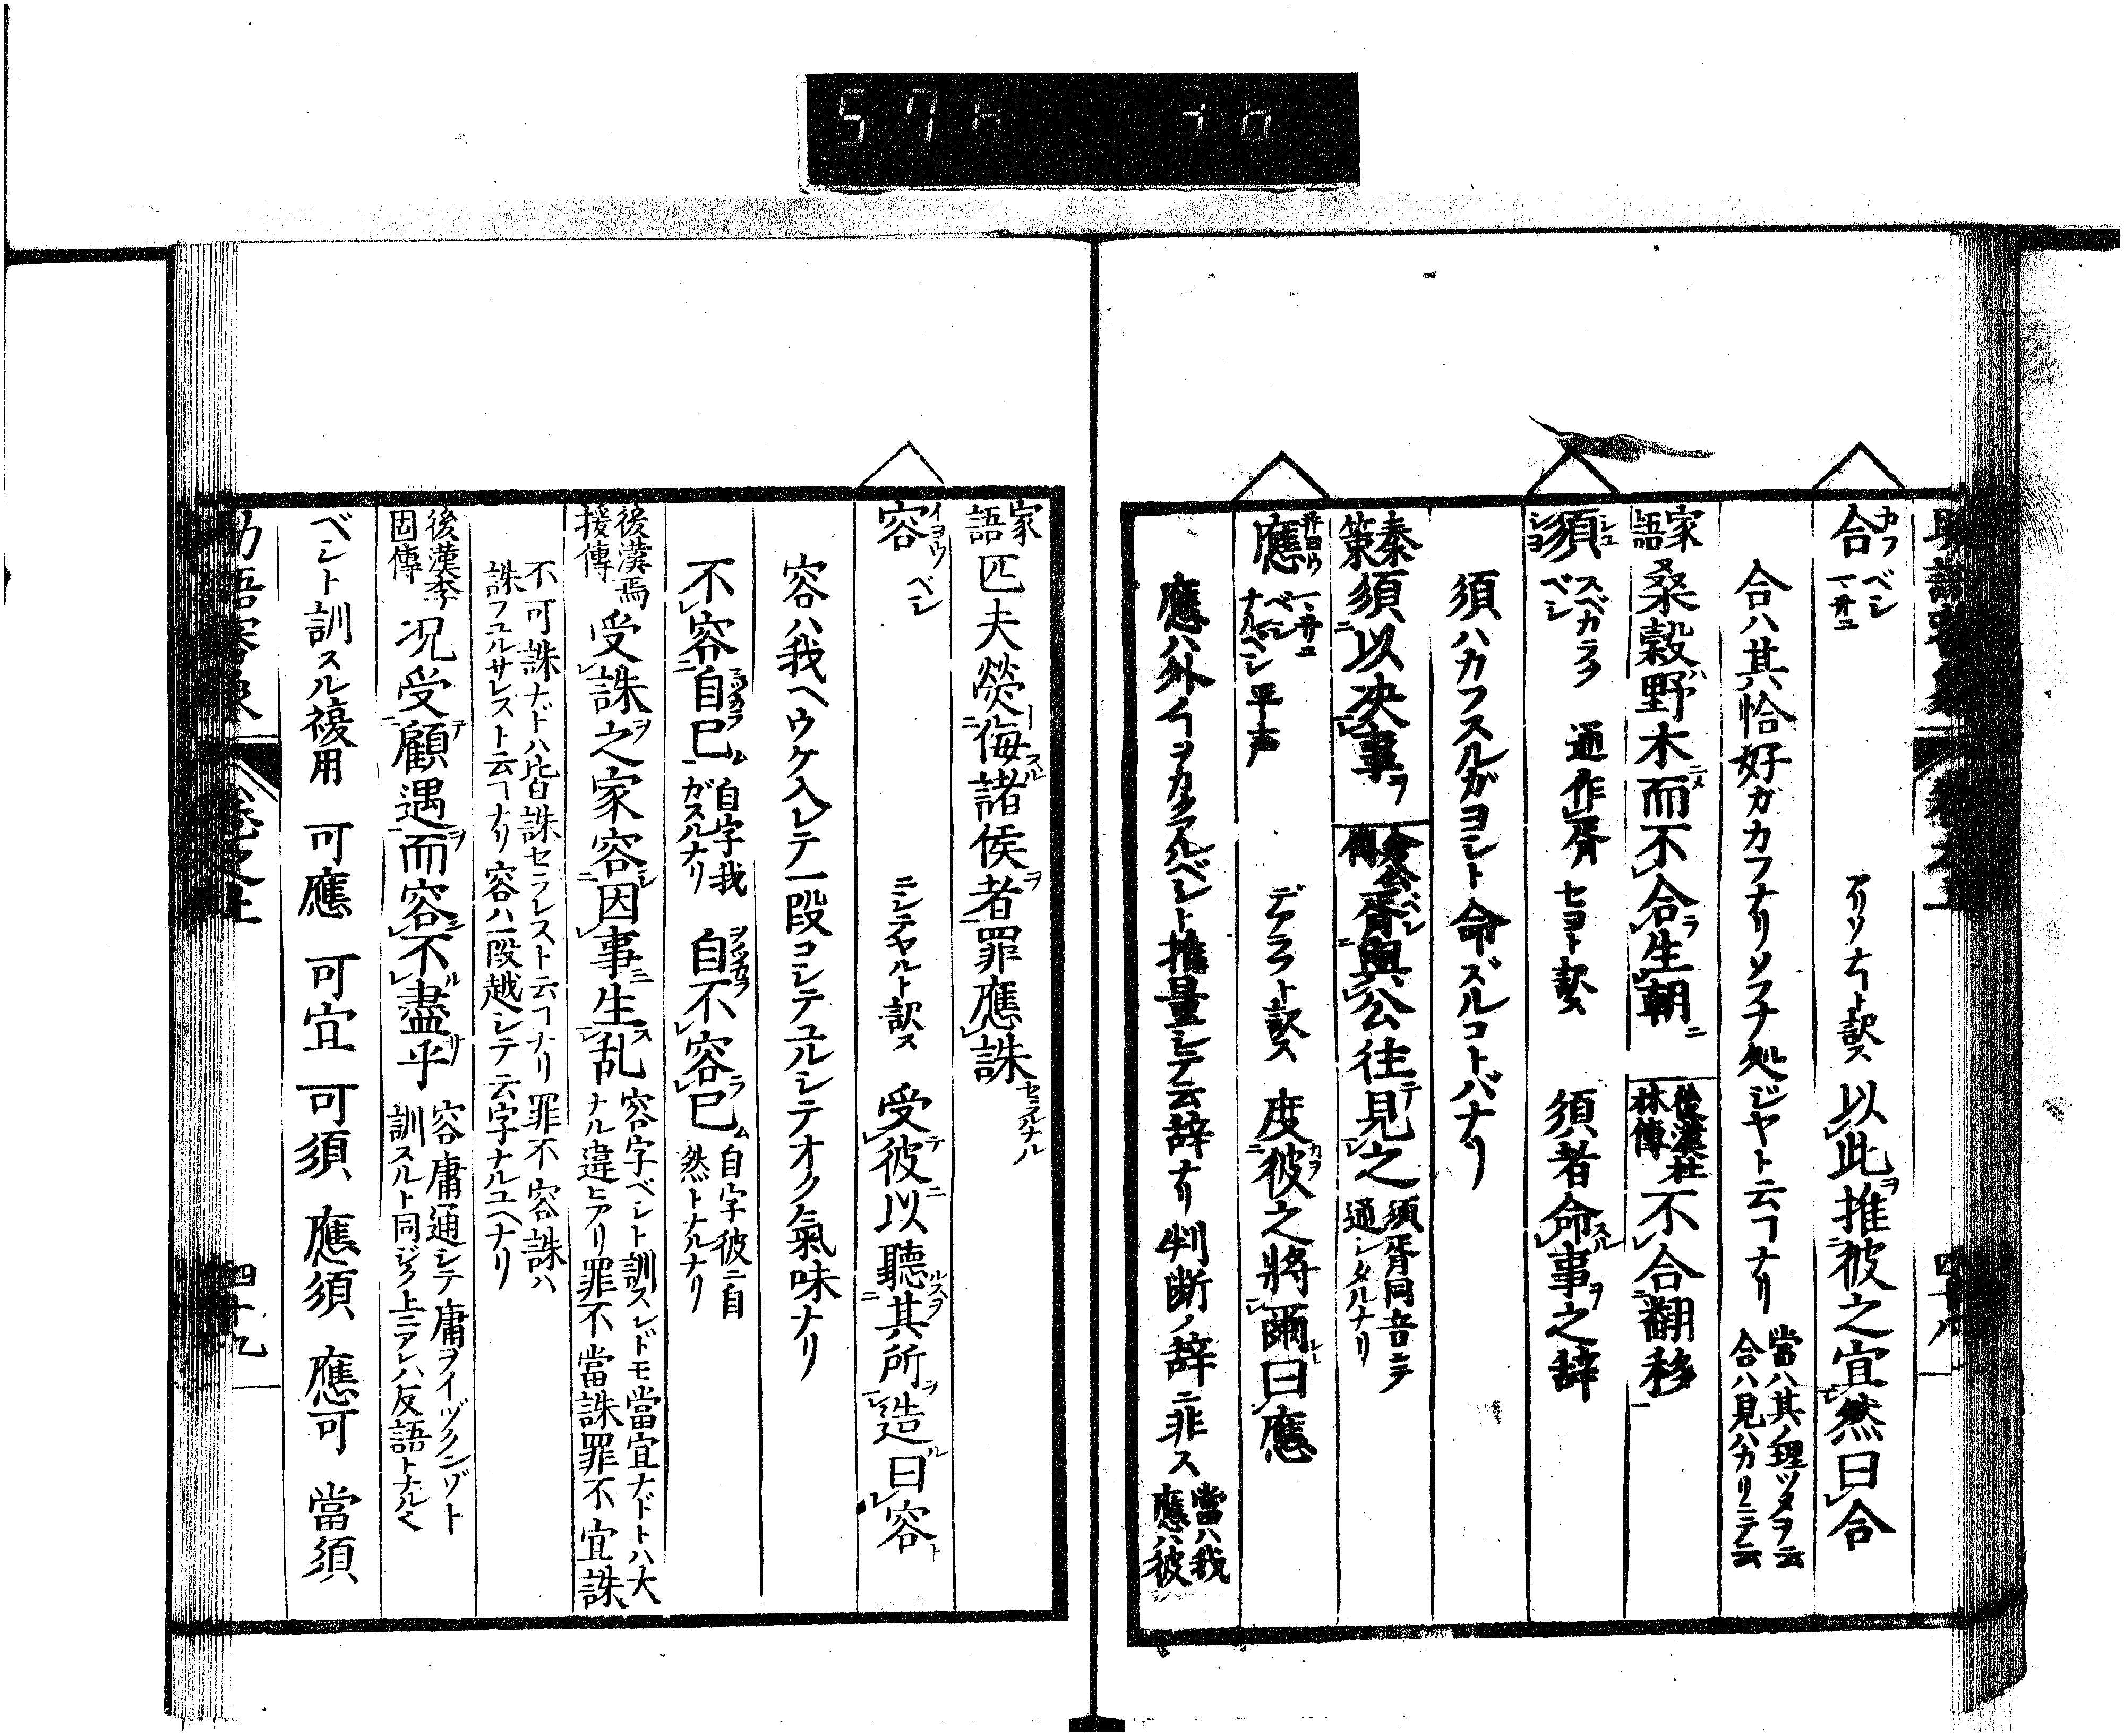 合 カフ ベシ 一ニ アリソナト訳ス 以此推彼之宜然曰合
合ハ其恰好ガカフナリソフナ処ジヤト云フナリ 當ハ其ノ理ヅメヲ云 合ハ見ハカリニテ云
家語 桑穀野木而不合生朝 後漢杜林傳 不合翻移
須 シユ スベカラク ベシ 通作胥 セヨト訳ス 須者命事之辞
須ハカフスルガヨシト命ズルコトバナリ
秦策 須以决事 胥與公往見之 須胥同音ニテ通シタルナリ
應 ベシ ナルベシ 平声 デアラフト訳ス 度彼之將爾曰應
應ハ外ヨリヲカクアルベシト推量シテ云辞ナリ 判断ノ辞ニ非ス 當ハ我 應ハ彼
四十八
家語 匹夫熒侮諸侯者罪應誅 セラルナル
容 イヨウ ベシ ニシテヤルト訳ス 受彼以聽其所造曰容
容ハ我ヘウケ入レテ一段コシテユルシテオク氣味ナリ
不容自已 自字我ガスルナリ 自不容已 自字彼ニ自然トナルナリ
後漢馬援傳 受誅之家容因事生乱 容字ベシト訓スレドモ當宜ナドトハ大ナル違ヒアリ罪不當誅罪不宜誅
不可誅ナドハ皆誅セラレスト云フナリ罪不容誅ハ誅フユルサレスト云フナリ容ハ一段越シテ云字ナルユヘナリ
後漢李固傳 况受顧遇而容不盡乎 容庸通シテ庸ヲイヅクンゾト訓スルト同ジク上ニアレハ反語トナル
ベシト訓スル複用 可應 可宜 可須 應須 應可 當須
助語審象 卷之上 四十九